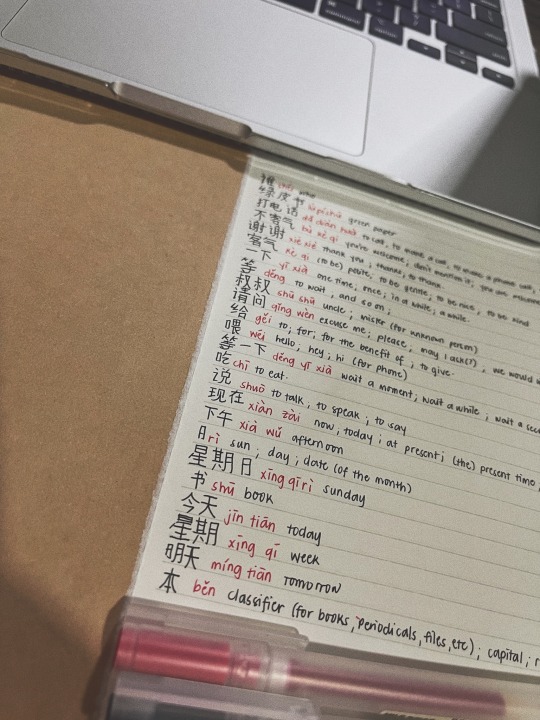 谁 shéi who
绿皮书 lǜ pí shū green paper
打电话 dǎ diàn huà to call, to make a call, to make a phone call,
不客气 bù kè qì you're welcome; don't mention it; you are welcome
谢谢 xiè xiè thank you; thanks; to thank
客气 kè qì (to be) polite, to be gentle; to be nice, to be kind
一下 yī xià one time; once; in a while; a while.
等 děng to wait, and so on;
叔叔 shū shū uncle; mister (for unknown person)
请问 qǐng wèn excuse me; please, may i ask(?), we would
给 gěi to; for; for the benefit of; to give.
喂 wéi hello; hey; hi (for phone)
等一下 děng yī xià wait a moment; wait a while; wait a
吃 chī to eat.
说 shuō to talk; to speak; to say
现在 xiàn zài now; today; at present; (the) present time
下午 xià wǔ afternoon
日 rì sun; day; date (of the month)
星期日 xīng qī rì sunday
书 shū book
今天 jīn tiān today
星期 xīng qī week
明天 míng tiān Tomorrow
本 běn classifier (for books, periodicals, files, etc); capital;